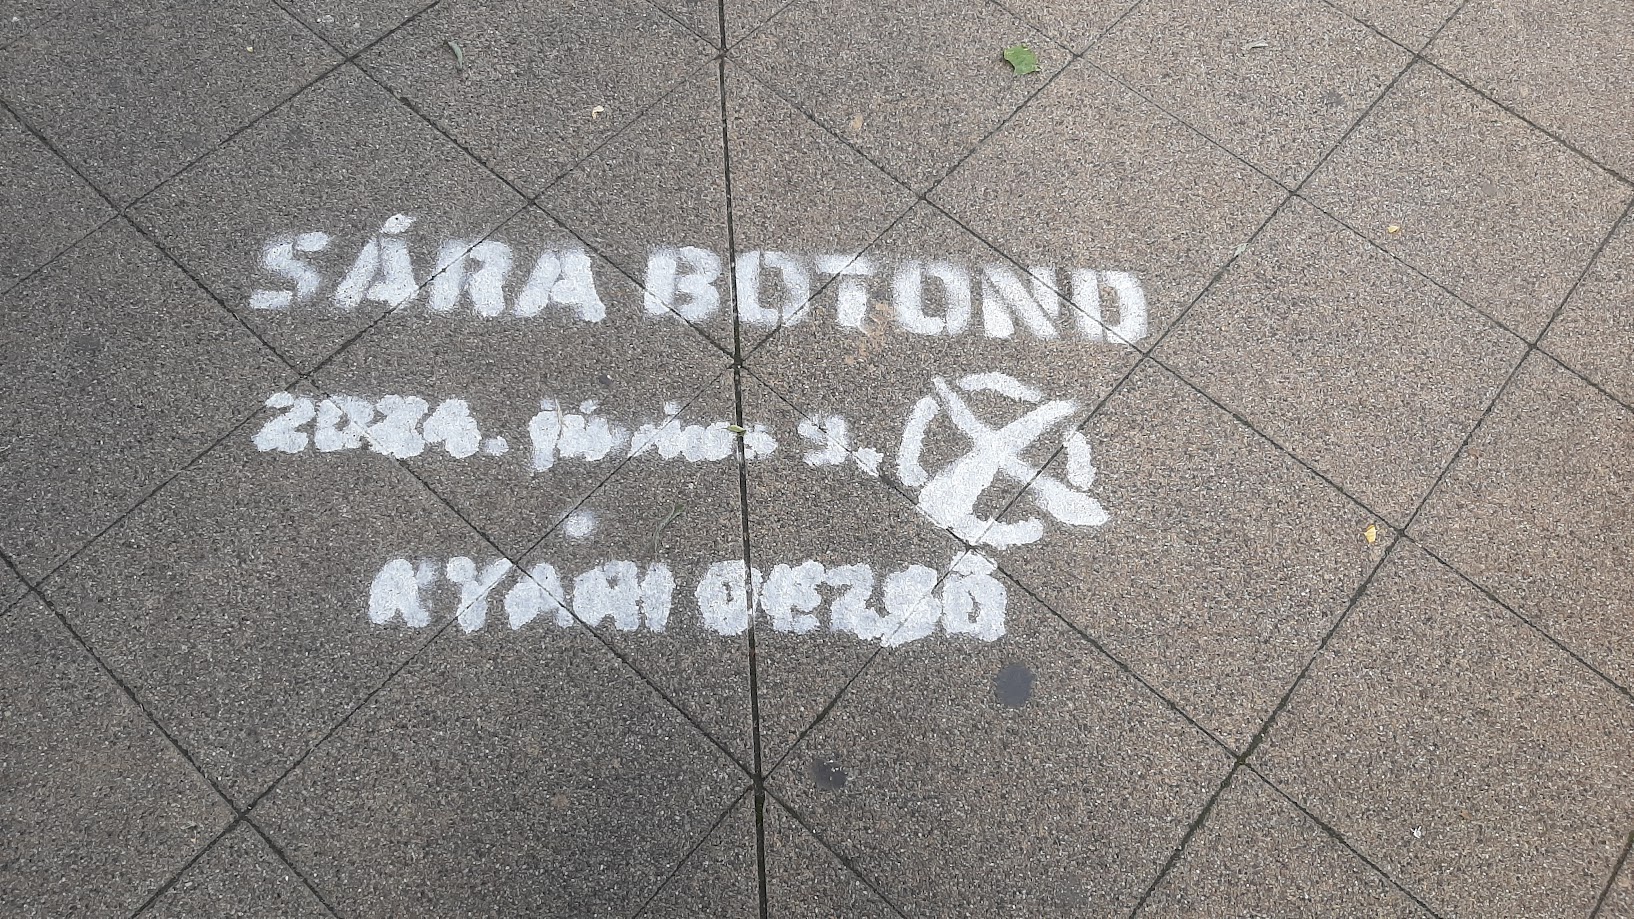 SÁRA BOTOND
2024. június 9.
NYÁRI DEZSŐ